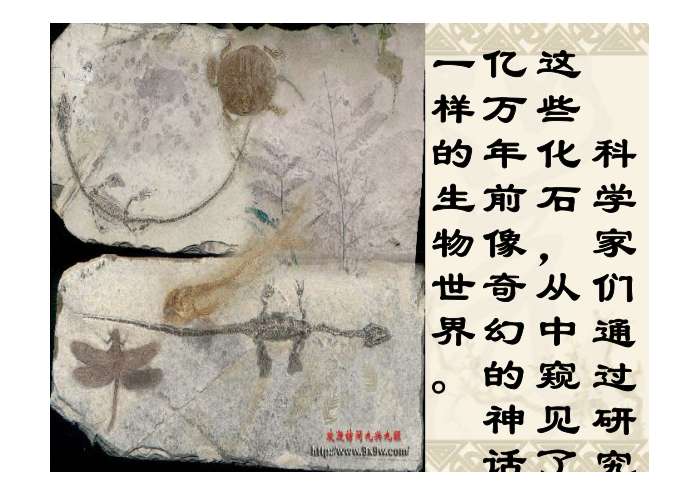 科学家们通过研究
这些化石，从中窥见了
亿万年前像奇幻的神话
一样的生物世界。
欢迎访问九
http://www.9x9w.com/